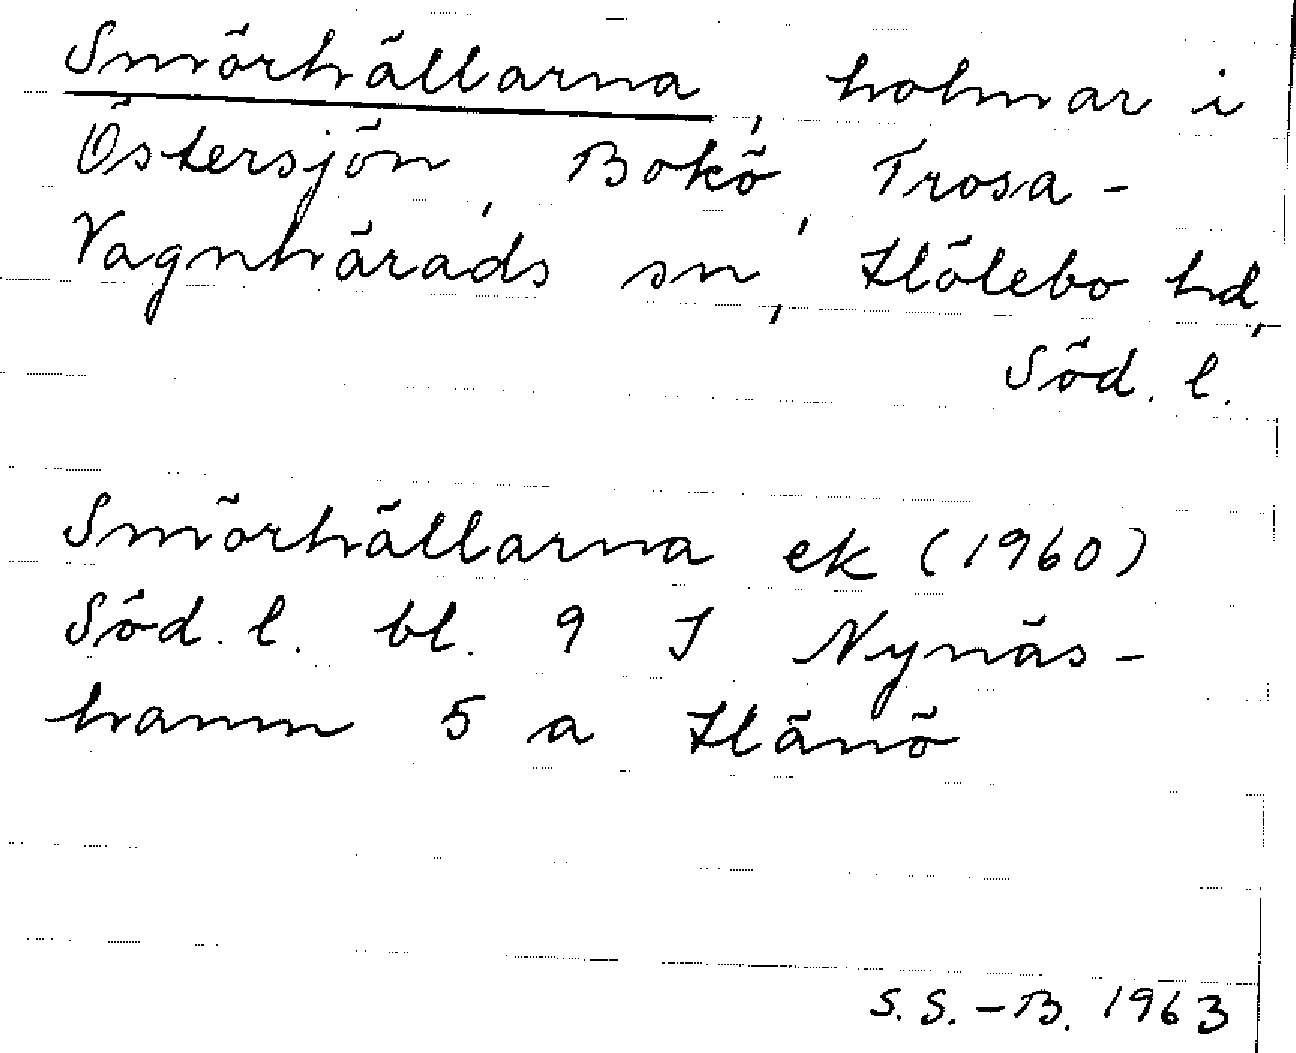 Smörhällarna, holmar i
Östersjön, Bokö, Trosa-
Vagnhärads sn, Hölebo hd,
Söd. l.
Smörhällarna ek (1960)
Söd. l. bl. 9 I Nynäs-
hamn 5 a Hånö
S. S. -B. 1963